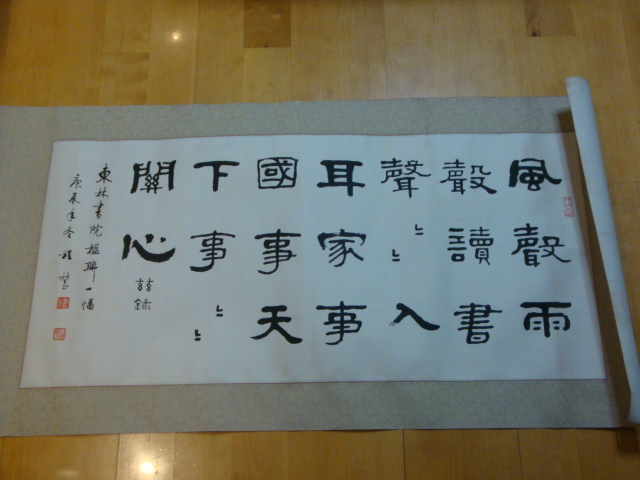 風聲雨
聲讀書
聲〻〻入
耳家事
國事天
下事〻〻
關心 兹錄
東林書院楹聯一幅
庚辰年冬